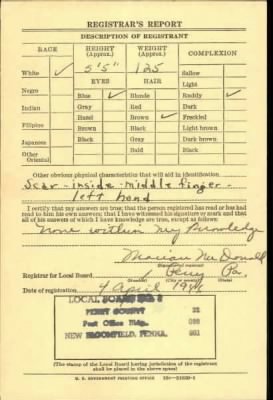 REGISTRAR'S REPORT
DESCRIPTION OF REGISTRANT
RACE HEIGHT (Approx.) WEIGHT (Approx.) COMPLEXION
White ✓ 5'5" 125 Sallow
EYES HAIR Light
Negro Blue ✓ Blonde Ruddy ✓
Indian Gray Red Dark
Hazel Brown ✓ Freckled
Filipino Brown Black Light brown
Japanese Black Gray Dark brown
Other Oriental Bald Black
Other obvious physical characteristics that will aid in identification
Scar - inside - middle finger -
left hand
I certify that my answers are true; that the person registered has read or has had
read to him his own answers; that I have witnessed his signature or mark and that
all of his answers of which I have knowledge are true, except as follows:
None within my knowledge
Marian McDonald
Registrar for Local Board 1 Perry Pa.
Date of registration 4 April
LOCAL BOARD
PERRY COUNTY
Post Office Bldg.
NEW BLOOMFIELD, PENNA.
(The stamp of the Local Board having jurisdiction of the registrant
shall be placed in the above space)
U. S. GOVERNMENT PRINTING OFFICE